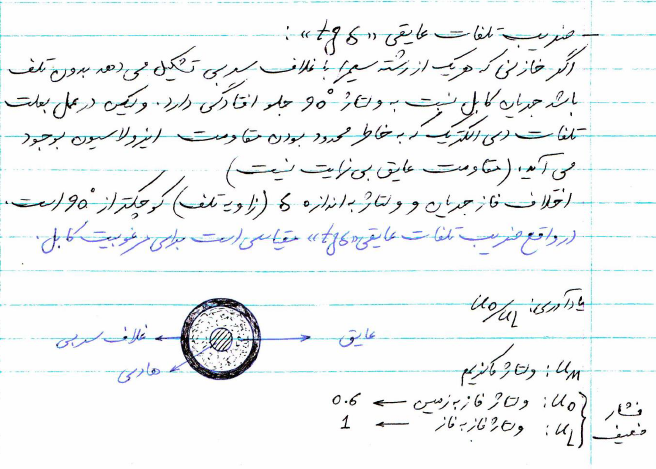 - ضریب تلفات عایقی «tgδ»:
اگر خازنی که هر یک از رشته سیمها با غلاف سربی تشکیل می دهد بدون تلف
باشد جریان کابل نسبت به ولتاژ 90° جلو افتادگی دارد. ولیکن در عمل بعلت
تلفات دی الکتریک که به خاطر محدود بودن مقاومت ایزولاسیون بوجود
می آید، (مقاومت عایق بی نهایت نیست)
اختلاف فاز جریان و ولتاژ به اندازه δ (زاویه تلف) کوچکتر از 90° است.
در واقع ضریب تلفات عایقی «tgδ» مقیاسی است برای مرغوبیت کابل.
یادآوری: U0/UL
عایق
غلاف سربی
هادی
UM: ولتاژ ماکزیمم
U0: ولتاژ فاز به زمین ← 0.6
UL: ولتاژ فاز به فاز ← 1
فشار
ضعیف